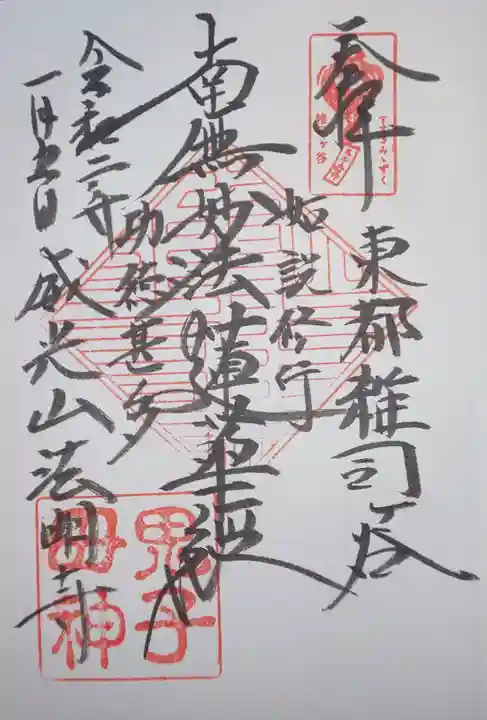 奉拝
東都雑司ヶ谷
如説修行
南無妙法蓮華経
功徳甚多
威光山法明寺
令和二年
一月五日
すすきみみずく
雑司ヶ谷
鬼子
母神